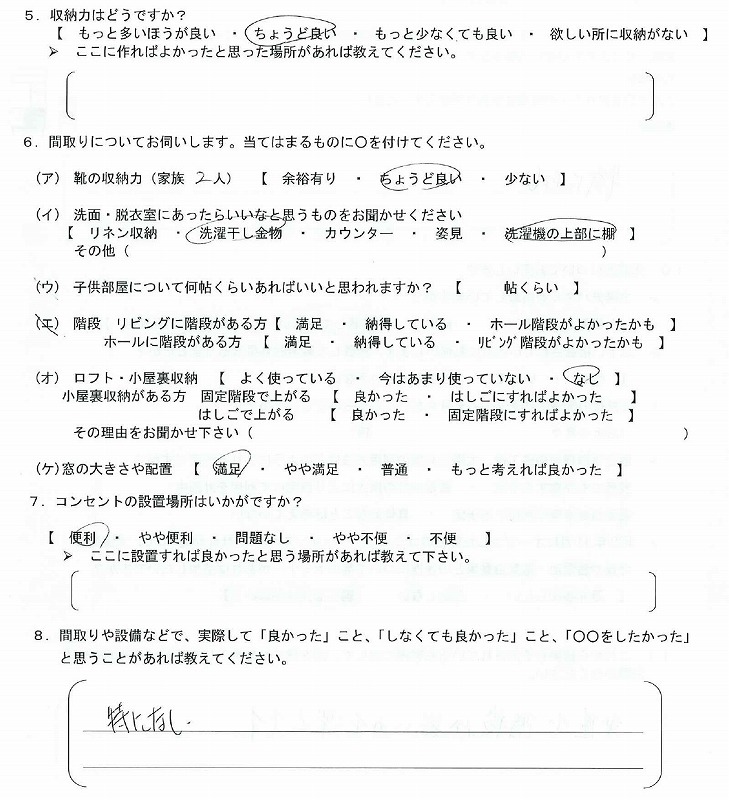 ５．収納力はどうですか？
【　もっと多いほうが良い　・　ちょうど良い　・　もっと少なくても良い　・　欲しい所に収納がない　】
➢　ここに作ればよかったと思った場所があれば教えてください。
６．間取りについてお伺いします。当てはまるものに〇を付けてください。
（ア）　靴の収納力（家族　２人）　【　余裕有り　・　ちょうど良い　・　少ない　】
（イ）　洗面・脱衣室にあったらいいなと思うものをお聞かせください
【　リネン収納　・　洗濯干し金物　・　カウンター　・　姿見　・　洗濯機の上部に棚　】
その他（　　　　　　　　　　）
（ウ）　子供部屋について何帖くらいあればいいと思われますか？　【　　　帖くらい　】
（エ）　階段　リビングに階段がある方【　満足　・　納得している　・　ホール階段がよかったかも　】
ホールに階段がある方　【　満足　・　納得している　・　ﾘﾋﾞﾝｸﾞ階段がよかったかも　】
（オ）　ロフト・小屋裏収納　【　よく使っている　・　今はあまり使っていない　・　なし　】
小屋裏収納がある方　固定階段で上がる　【　良かった　・　はしごにすればよかった　　】
はしごで上がる　　【　良かった　・　固定階段にすればよかった　】
その理由をお聞かせ下さい（　　　　　　　　　　）
（ケ）窓の大きさや配置　【　満足　・　やや満足　・　普通　・　もっと考えれば良かった　】
７．コンセントの設置場所はいかがですか？
【　便利　・　やや便利　・　問題なし　・　やや不便　・　不便　　】
➢　ここに設置すれば良かったと思う場所があれば教えて下さい。
８．間取りや設備などで、実際して「良かった」こと、「しなくても良かった」こと、「〇〇をしたかった」
と思うことがあれば教えてください。
特になし．